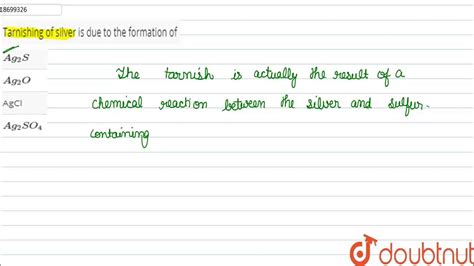 18699326
Tarnishing of silver is due to the formation of
Ag₂S
Ag₂O
AgCl
Ag₂SO₄
The tarnish is actually the result of a
chemical reaction between the silver and sulfur-
containing
doubtnut